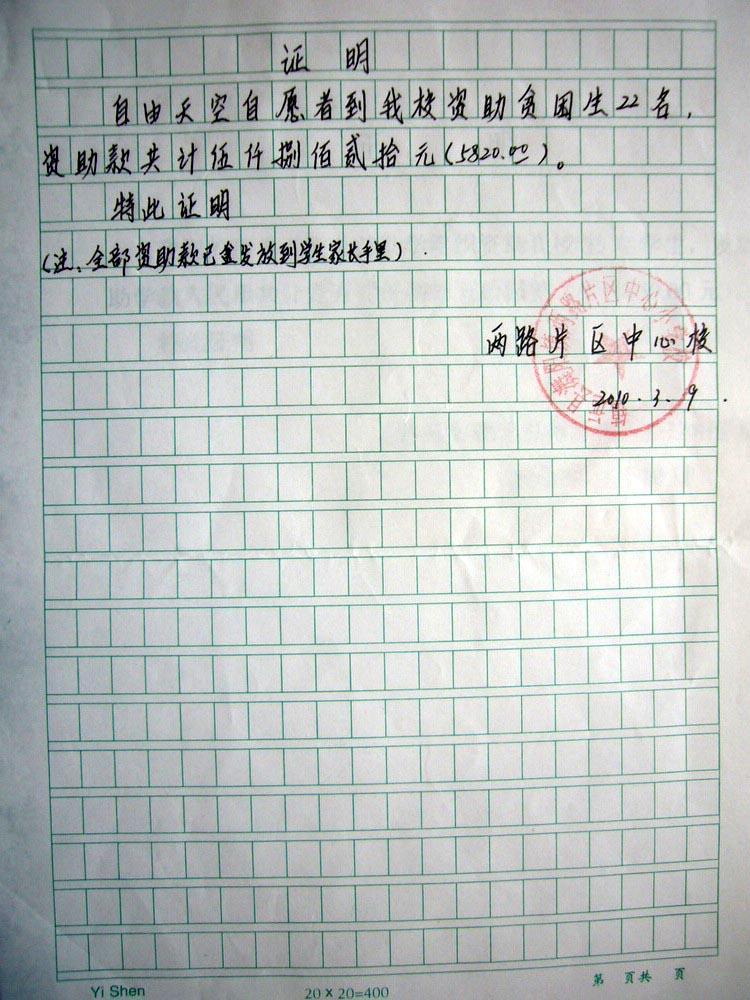 证明
自由天空自愿者到我校资助贫困生22名，
资助款共计伍仟捌佰贰拾元(5820.00)。
特此证明
(注：全部资助款已全发放到学生家长手里).
两路片区中心校
2010.3.9.
Yi Shen
20×20=400
第 页共 页